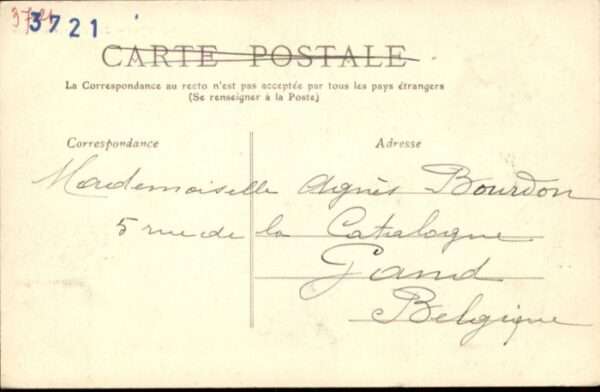 3721
3721
CARTE POSTALE
La Correspondance au recto n'est pas acceptée par tous les pays étrangers
(Se renseigner à la Poste)
Correspondance
Adresse
Mademoiselle Agnès Bourdon
5 rue de la Catalogne
Gand
Belgique